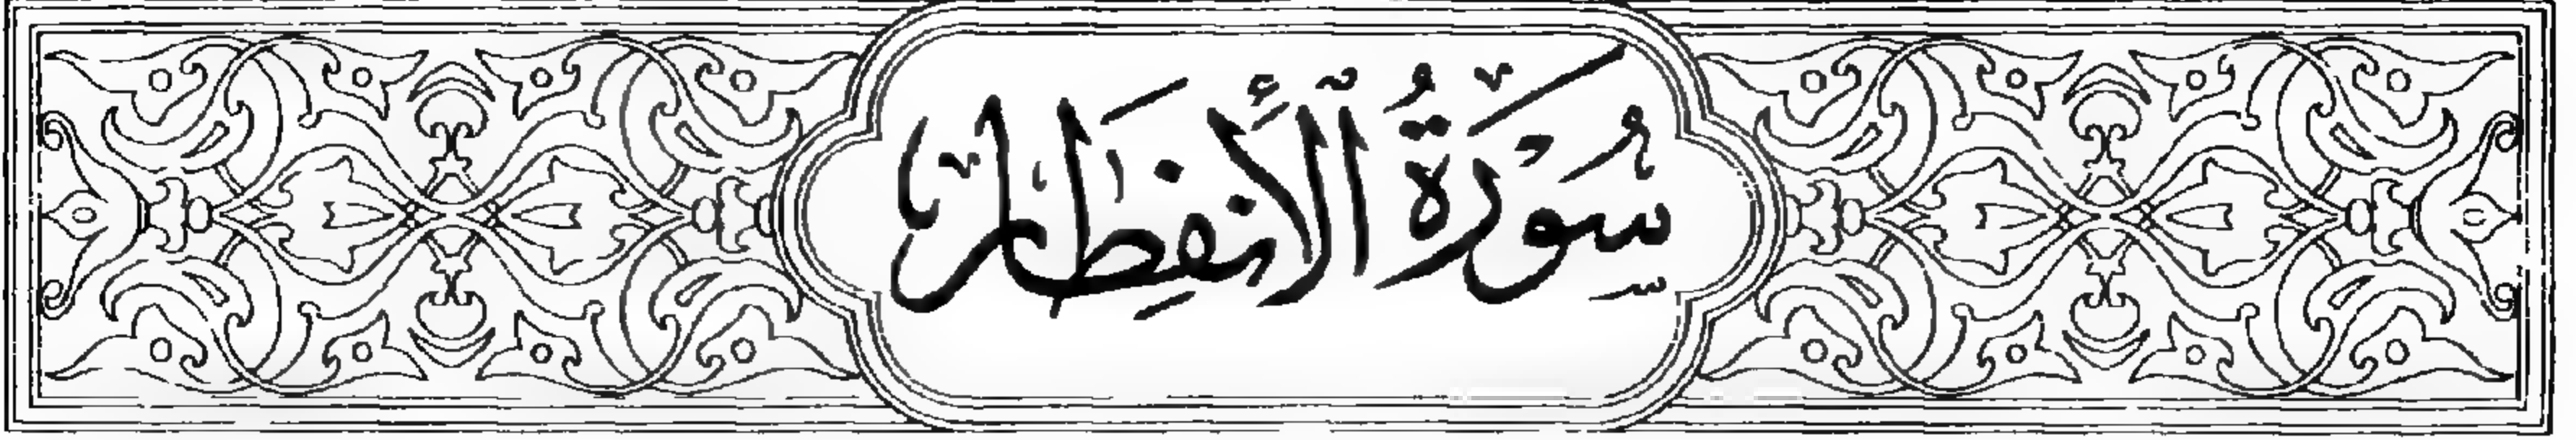 سُورَةُ ٱلْأَنفِطَار